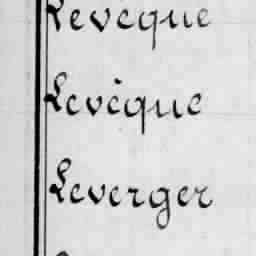 Levêque
Levèque
Leverger